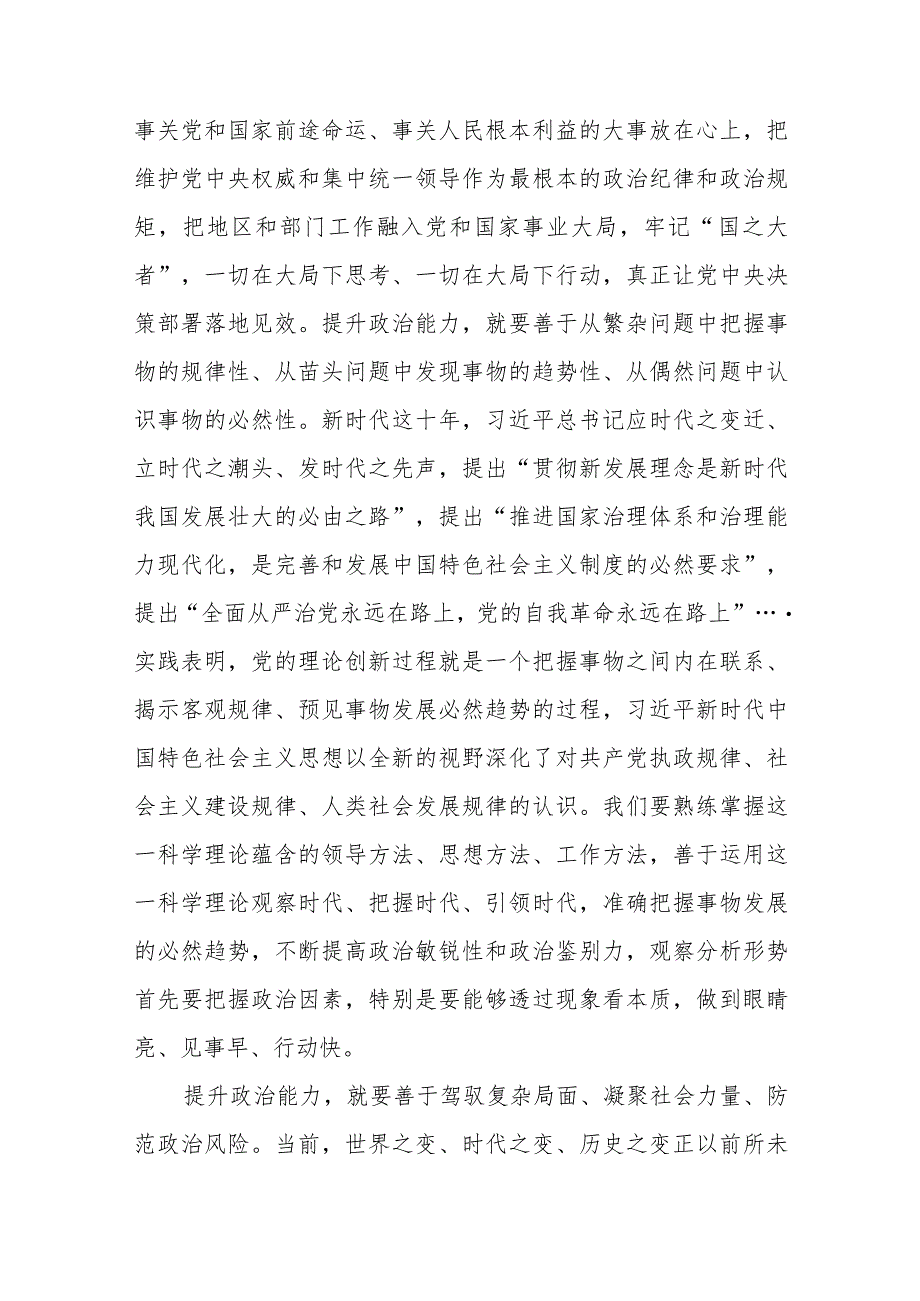 事关党和国家前途命运、事关人民根本利益的大事放在心上，把
维护党中央权威和集中统一领导作为最根本的政治纪律和政治规
矩，把地区和部门工作融入党和国家事业大局，牢记“国之大
者”，一切在大局下思考、一切在大局下行动，真正让党中央决
策部署落地见效。提升政治能力，就要善于从繁杂问题中把握事
物的规律性、从苗头问题中发现事物的趋势性、从偶然问题中认
识事物的必然性。新时代这十年，习近平总书记应时代之变迁、
立时代之潮头、发时代之先声，提出“贯彻新发展理念是新时代
我国发展壮大的必由之路”，提出“推进国家治理体系和治理能
力现代化，是完善和发展中国特色社会主义制度的必然要求”，
提出“全面从严治党永远在路上，党的自我革命永远在路上”…•
实践表明，党的理论创新过程就是一个把握事物之间内在联系、
揭示客观规律、预见事物发展必然趋势的过程，习近平新时代中
国特色社会主义思想以全新的视野深化了对共产党执政规律、社
会主义建设规律、人类社会发展规律的认识。我们要熟练掌握这
一科学理论蕴含的领导方法、思想方法、工作方法，善于运用这
一科学理论观察时代、把握时代、引领时代，准确把握事物发展
的必然趋势，不断提高政治敏锐性和政治鉴别力，观察分析形势
首先要把握政治因素，特别是要能够透过现象看本质，做到眼睛
亮、见事早、行动快。
提升政治能力，就要善于驾驭复杂局面、凝聚社会力量、防
范政治风险。当前，世界之变、时代之变、历史之变正以前所未